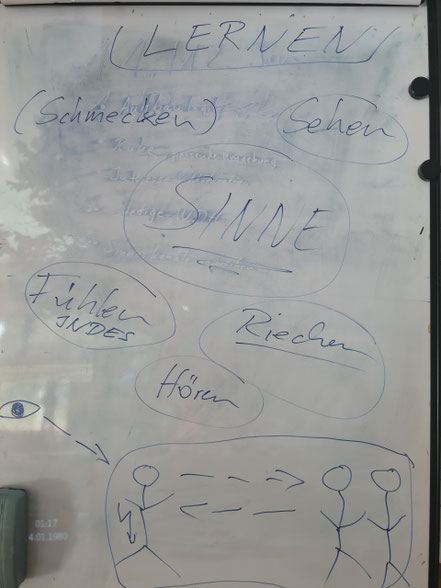 LERNEN
(Schmecken)
Sehen
SINNE
Fühlen
INDES
Riechen
Hören
01:17
4.01.1980